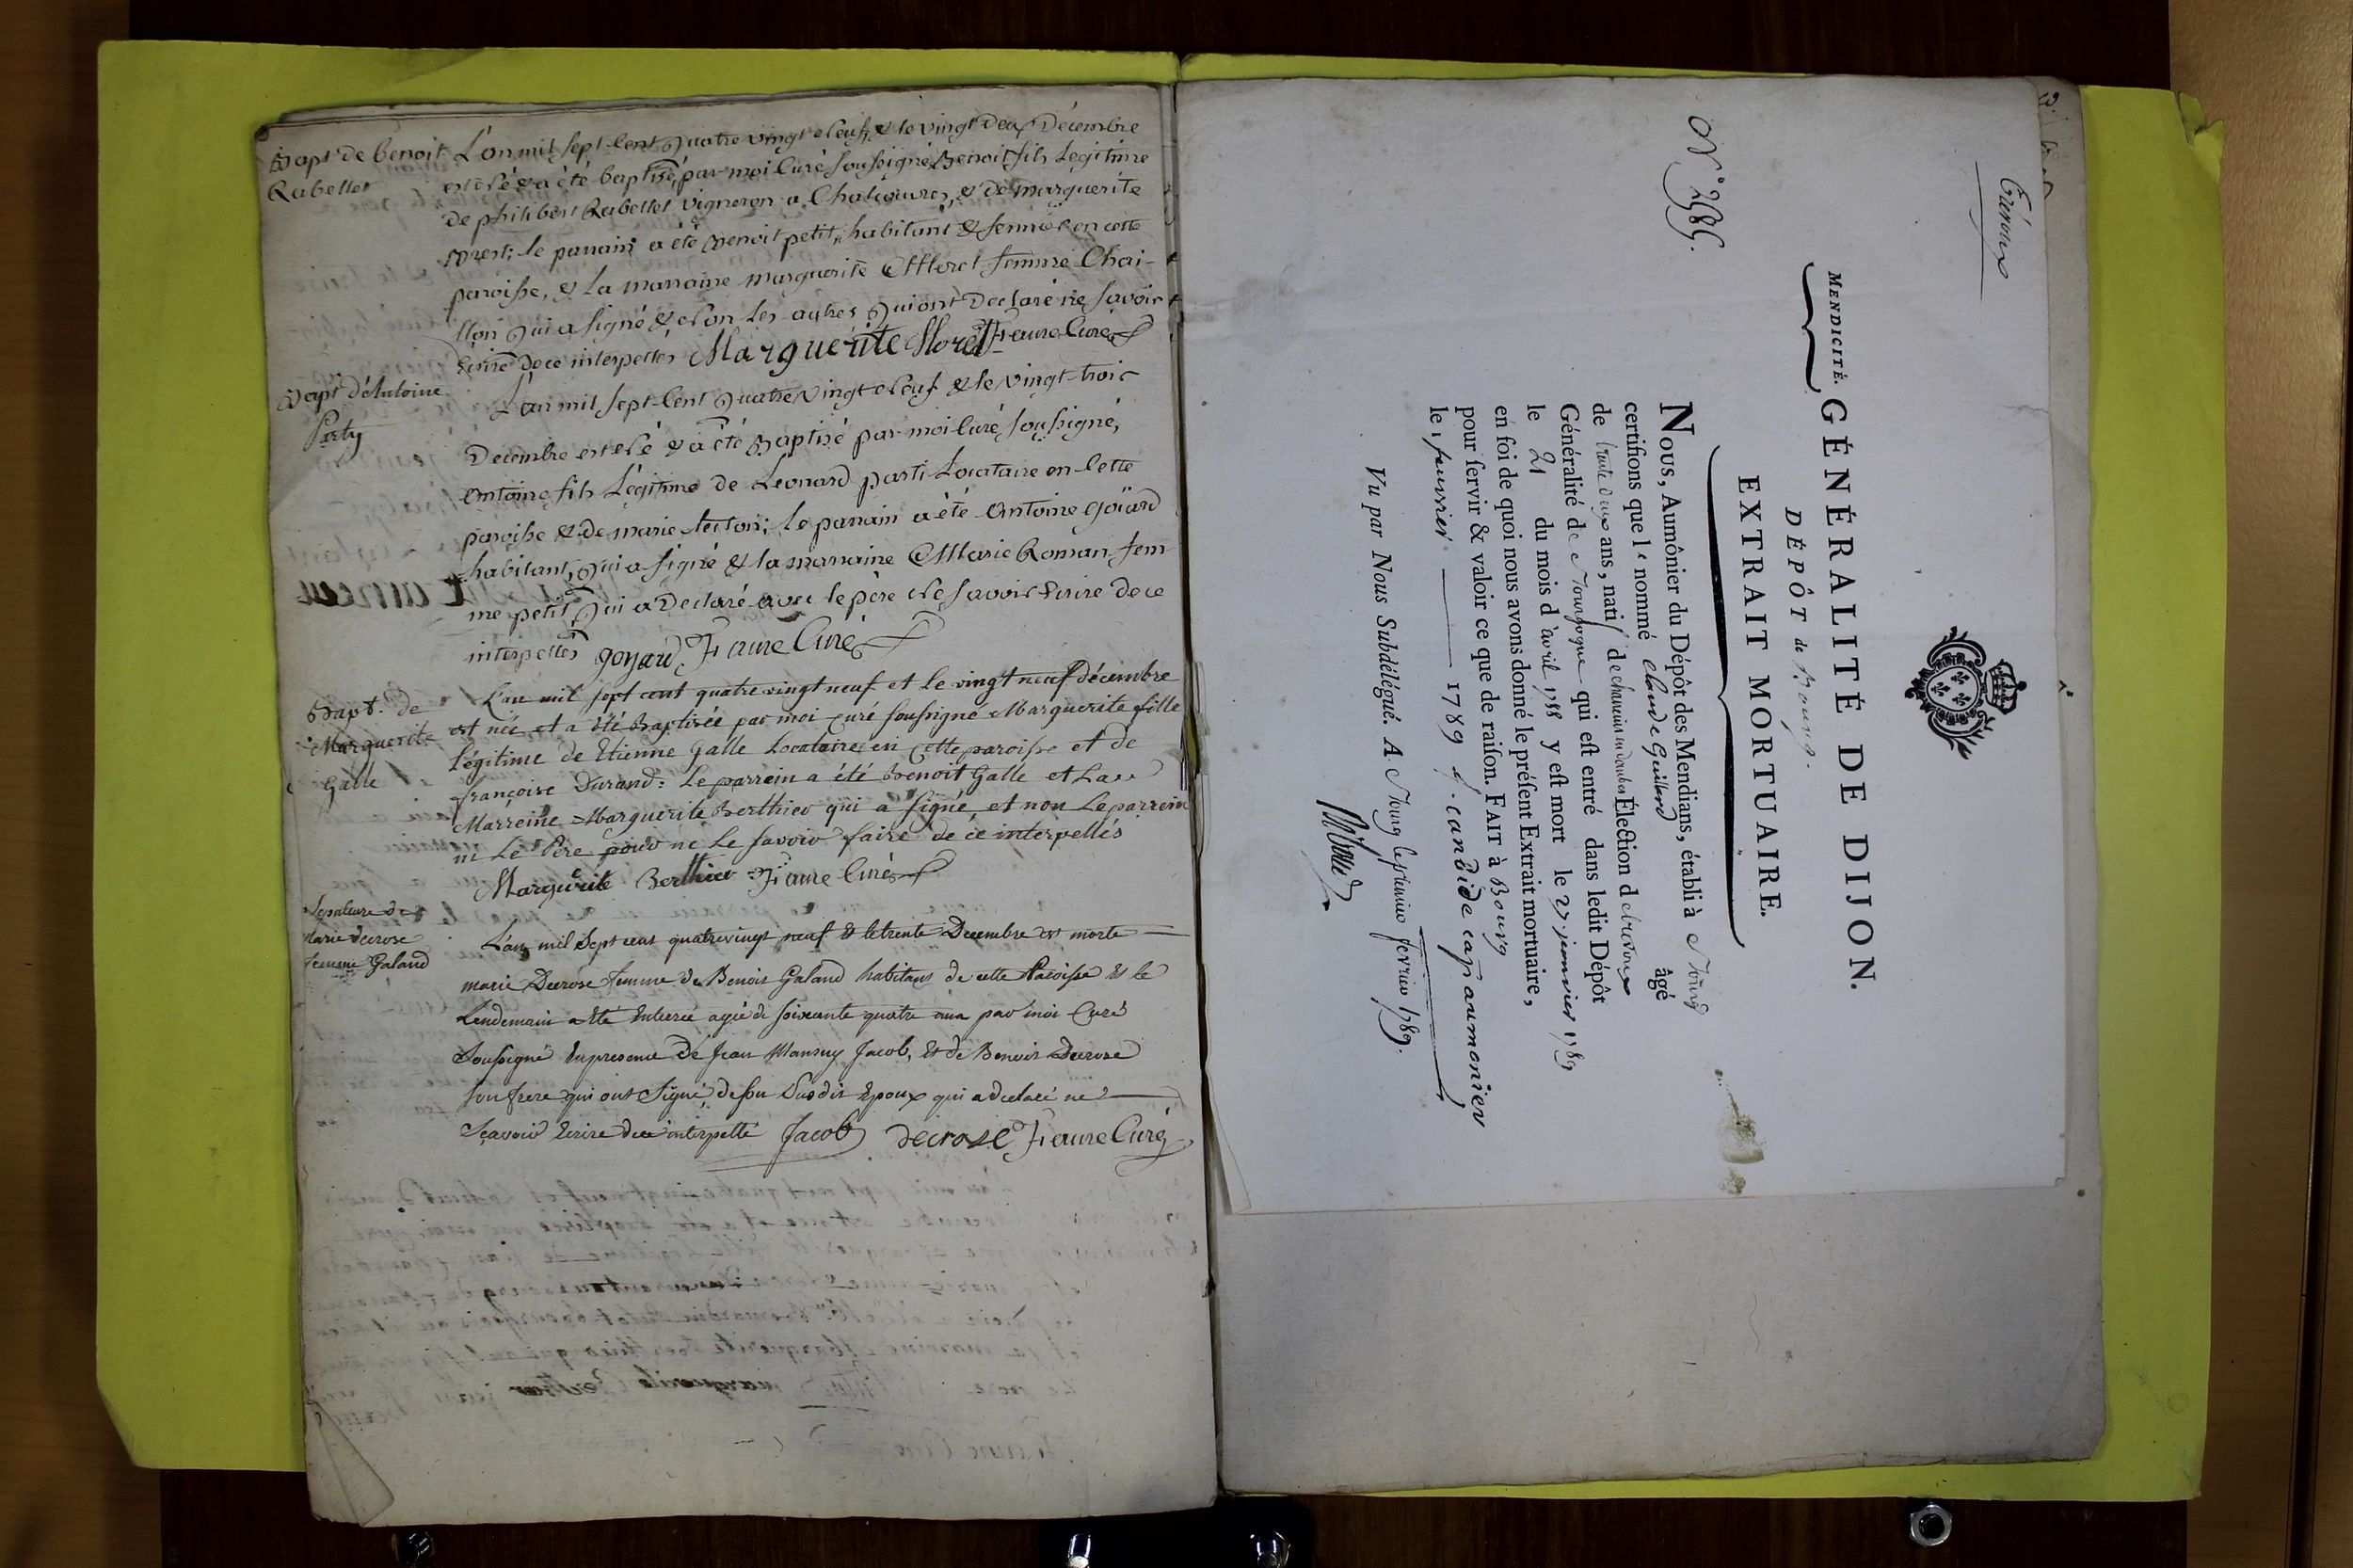 Bapt. de benoit
Rabellet
L'an mil sept-Cent Quatre vingt Neuf, & le vingt Deux Décembre
est Né & a été baptisé, par moi Curé soussigné Benoit fils Legitime
de philibert Rabellet vigneron a Chaleoures, & de marguerite
le parrain a été Benoit petit, habitant & fermier en cette
paroisse, & la marraine marguerite Morel femme Chai-
llon Qui a signé & Non les autres Qui ont Declaré ne savoir
Ecrire de ce interpellés Marguerite Morel Faure Curé
Bapt. d'Antoine
Party
L'an mil sept-Cent Quatre Vingt Neuf & le Vingt-trois
Decembre est Né & a été Baptisé par moi Curé soussigné,
Antoine fils Légitime de Léonard parti Locataire en Cette
paroisse & de marie ; le parrain a été Antoine Goïard
habitant, Qui a signé & la marraine Marie Roman fem-
me petit, Qui a Declaré avec le père Ne savoir Ecrire de ce
interpellés goyard Faure Curé
Bapt. de
Marguerite
Galle
L'an mil sept cent quatre vingt neuf et le vingt neuf décembre
est née et a été Baptisée par moi curé soussigné Marguerite fille
légitime de Etienne Galle Locataire en Cette paroisse et de
françoise Durand : Le parrein a été Benoit Galle et La
Marreine Marguerite Berthier qui a signé et non Le parrein
ni Le Père pour ne Le savoir faire de ce interpellés
Marguerite Berthier Faure Curé
Sepulture de
Marie decrose
femme Galand
L'an mil Sept cent quatrevingt neuf & le trente Decembre est morte
marie Decrose femme de Benoit Galand habitant de cette Paroisse & le
Lendemain a Eté Enterrée agée de soixante quatre ans par moi Curé
Soussigné En presence de Jean Mansuy Jacob, Et de Benoit Decrose
son frere qui ont Signé, de son Susdit Epoux qui a declaré ne
Sçavoir Ecrire de ce interpellé Jacob decrose Faure Curé
Trévoux
N° 2585.
MENDICITÉ.
GÉNÉRALITÉ DE DIJON.
DÉPÔT de Bourg.
EXTRAIT MORTUAIRE.
NOUS, Aumônier du Dépôt des Mendians, établi à Bourg
certifions que le nommé claude Guillard âgé
de trente deux ans, natif de Élection de trevoux
Généralité de Bourgogne qui est entré dans ledit Dépôt
le 21 du mois d'avril 1788 y est mort le 27 janvier 1789
en foi de quoi nous avons donné le présent Extrait mortuaire,
pour servir & valoir ce que de raison. FAIT à Bourg
le 1 fevrier 1789 f. candide cap. aumonier
Vu par Nous Subdélégué. A Bourg le premier fevrier 1789.